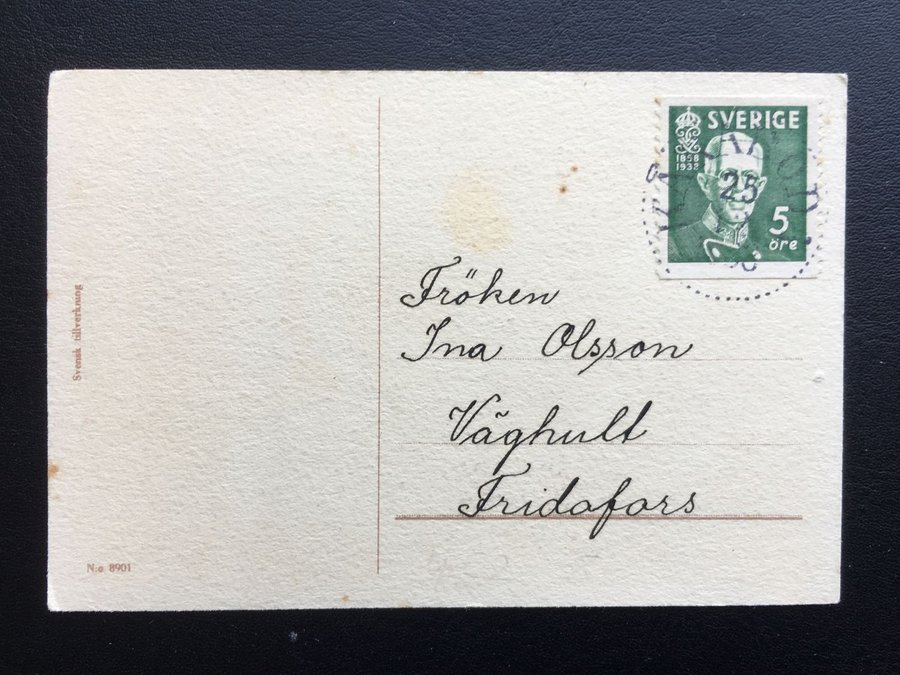 SVERIGE
1858
1938
25
5
öre
Fröken
Ina Olsson
Väghult
Fridafors
Svensk tillverkning
N:o 8901